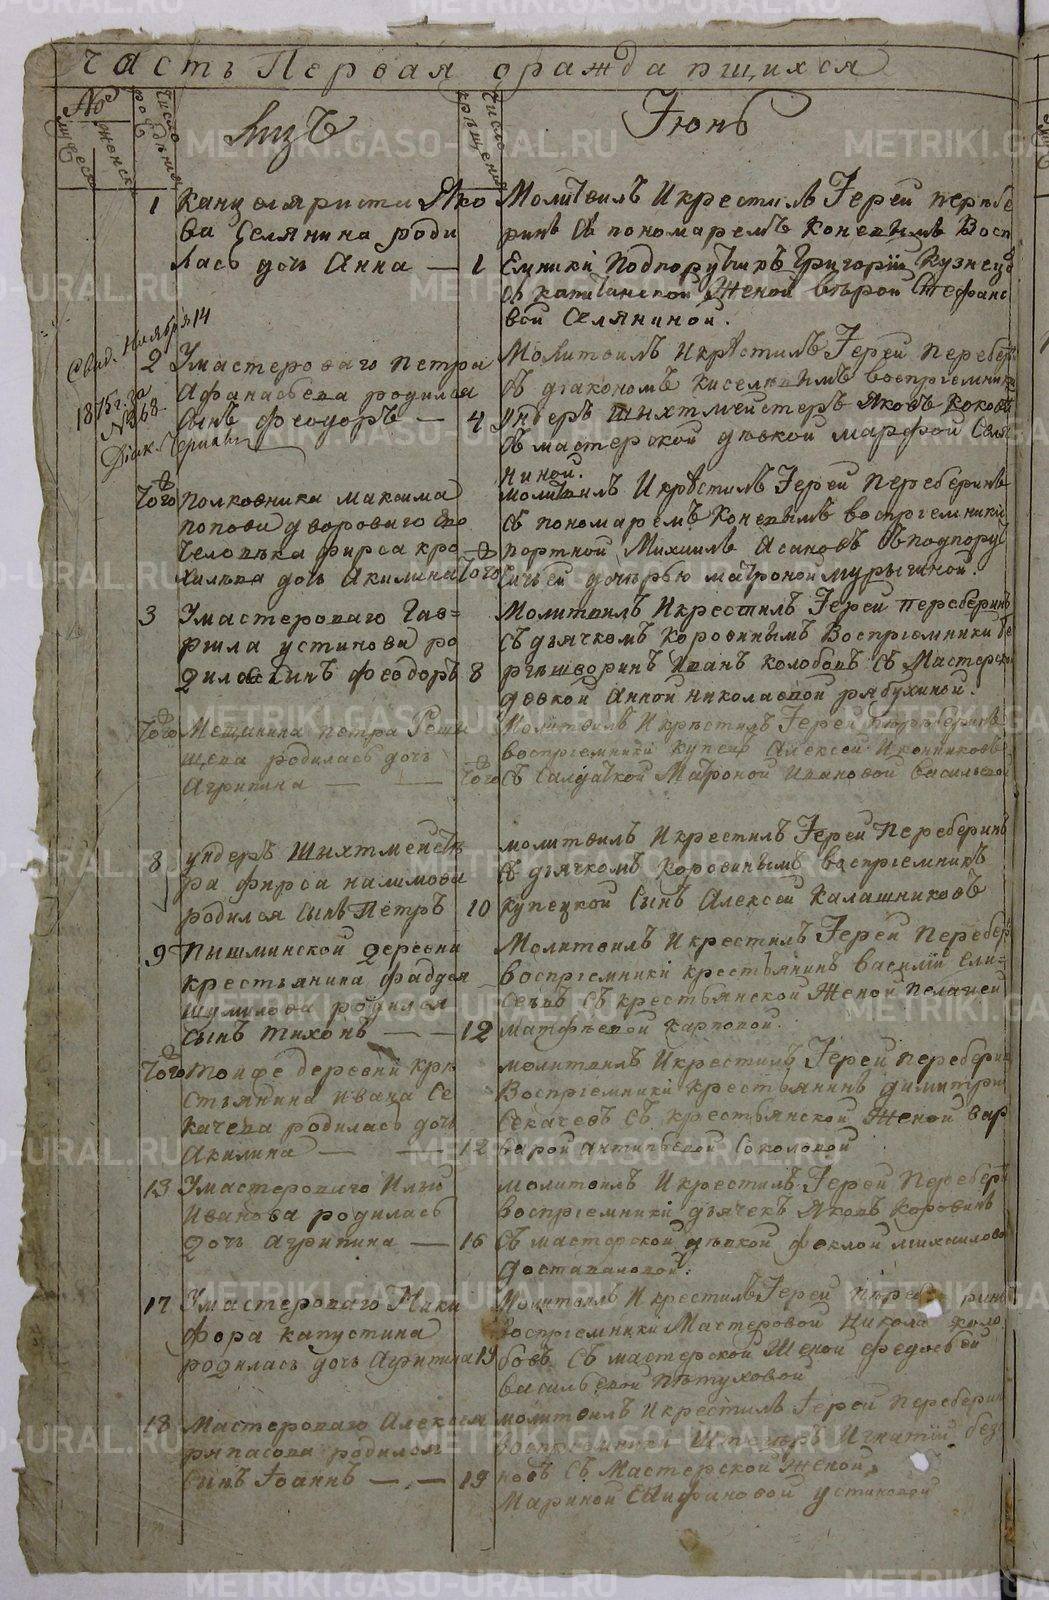 Часть Первая ораждапшихся
№
мужеск
женск
Число рождения
Лицъ
Число крещения
Іюнь
1 Канцеляриста Яко
ва Селянина роди
лась дочь Анна — 1
Молитвилъ Икрестилъ Іерей перебе
ринъ Съ пономаремъ Коневымъ Восп
Емники Подпорутчикъ Григорій Кузнецо
съ капитанской Женой второй Стефано
вой Селяниной.
Свид. Ноября 14
1875 г. за
№ 368
Діак. Черпан
2 Умастероваго петра
Афанасьева родился
Сынъ феодоръ — 4
Молитвилъ Икрестилъ Іерей Перебер
съ діакономъ киселевымъ воспріемники
Ундеръ Шыхтмейстеръ Яковъ Коковъ
съ мастерской девкой марфой Селя
ниной.
того Полковника максима
попова двороваго ево
человека фирса кро
хилева дочь Акилина того
молитвилъ Икрестилъ Іерей Переберинъ
съ пономаремъ Коневымъ воспріемники
портной Михаилъ Асановъ съ подпору
чичьей дочерью матроной мурычиной.
3 Умастероваго Гав=
рила устинова ро
дился сынъ феодоръ 8
Молитвилъ Икрестилъ Іерей переберинъ
съ дьячкомъ Коровинымъ Воспріемники бе
ргъшворинъ Иванъ колобовъ съ Мастерско
девкой Анной николаевой рябухиной.
того Мещанина петра Реши
щева родилась дочь
Агрипина — — того
Молитвилъ Икрестилъ Іерей переберинъ
воспріемники купецъ Алексей Иконниковъ
съ Салдаткой Матроной Ивановой васильевой
8 Ундеръ Шыхтмейсте
ра фирса налимова
родился Сынъ Петръ 10
молитвилъ Икрестилъ Іерей Переберинъ
съ дьячкомъ Коровинымъ воспріемникъ
купецкой Сынъ Алексей Калашниковъ
9 Пышминской деревни
крестьянина фаддея
шумилова родился
сынъ тихонъ — — 12
Молитвилъ Икрестилъ Іерей Перебер
воспріемники крестьянинъ василій Ели=
сеевъ съ крестьянской Женой пелагией
матфеевой карповой.
того тойже деревни кре
стьянина ивана Се
качева родилась дочь
Акилина — — 12
молитвилъ Икрестилъ Іерей Перебери
Воспріемники крестьянинъ димитри
Секачевъ съ крестьянской Женой вар
варой антипьевой Соколовой
13 Умастероваго Ильи
Иванова родилась
дочь Агрипина — 16
молитвилъ Икрестилъ Іерей Перебер
воспріемники дьячекъ Яковъ Коровинъ
съ мастерской девкой феклой михаилово
доставаловой.
17 Умастероваго Ники
фора капустина
родилась дочь Агрипина 19
Молитвилъ Икрестилъ Іерей пере ринъ
воспріемники Мастеровой Никола коло
бовъ съ мастерской Женой федосьей
васильевой петуховой
18 Мастероваго Алексея
рипасова родился
сынъ Іоаннъ — — 19
молитвилъ Икрестилъ Іерей Перебери
воспріемники Игнатій без
новъ съ Мастерской Женой
Мариной Епифановой устиновой
METRIKI.GASO-URAL.RU